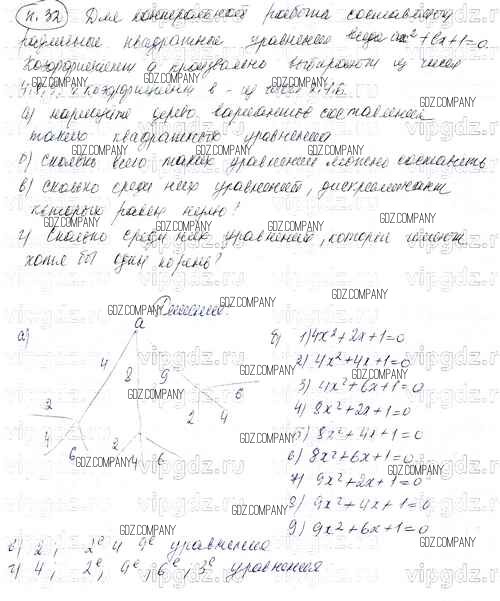 п. 32 Для контрольной работы составляют
различные квадратные уравнения вида ax²+bx+1=0.
Коэффициент a произвольно выбирают из чисел
4, 8, 9, а коэффициент b - из чисел 2, 4, 6.
а) нарисуйте дерево вариантов составления
такого квадратного уравнения
б) сколько всего таких уравнений можно составить
в) сколько среди них уравнений, дискриминант
которых равен нулю?
г) сколько среди них уравнений, которые имеют
хотя бы один корень?
Решение:
а) a
4 8 9
2 4 6 2 4 6 2 4 6
б) 1) 4x²+2x+1=0
2) 4x²+4x+1=0
3) 4x²+6x+1=0
4) 8x²+2x+1=0
5) 8x²+4x+1=0
6) 8x²+6x+1=0
7) 9x²+2x+1=0
8) 9x²+4x+1=0
9) 9x²+6x+1=0
в) 2; 2е и 9е уравнения
г) 4; 2е, 9е, 6е, 3е уравнения
GDZ.COMPANY
vipgdz.ru